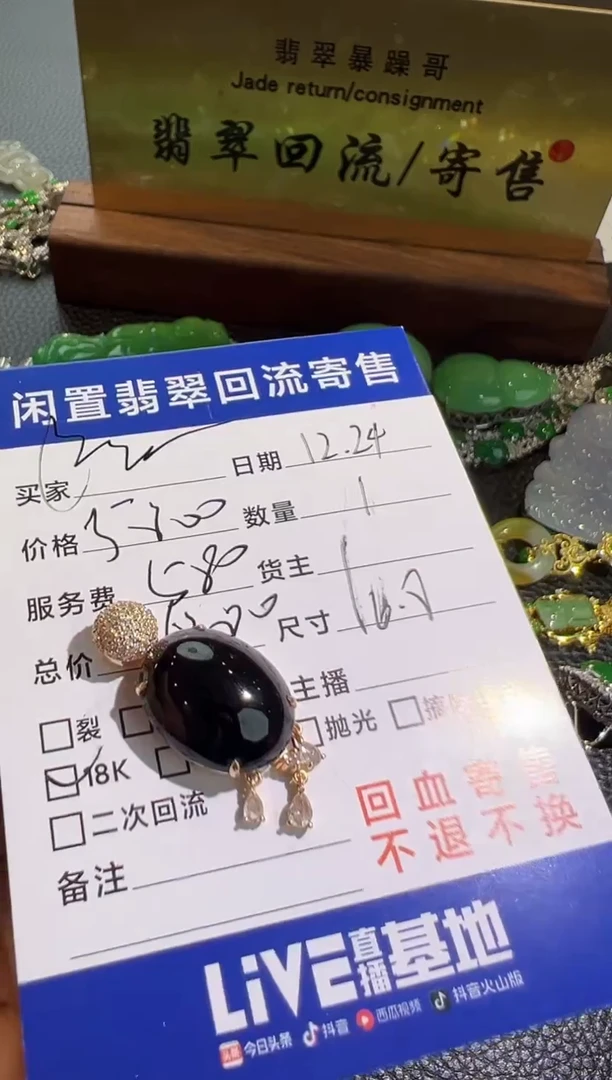 翡翠暴躁哥
Jade return/consignment
翡翠回流/寄售
闲置翡翠回流寄售
买家
日期 12.24
价格 5800
数量 1
服务费 580
货主
总价
尺寸
主播
裂
抛光
18K
二次回流
回血寄售
不退不换
备注
LiVE直播基地
今日头条 抖音 西瓜视频 抖音火山版